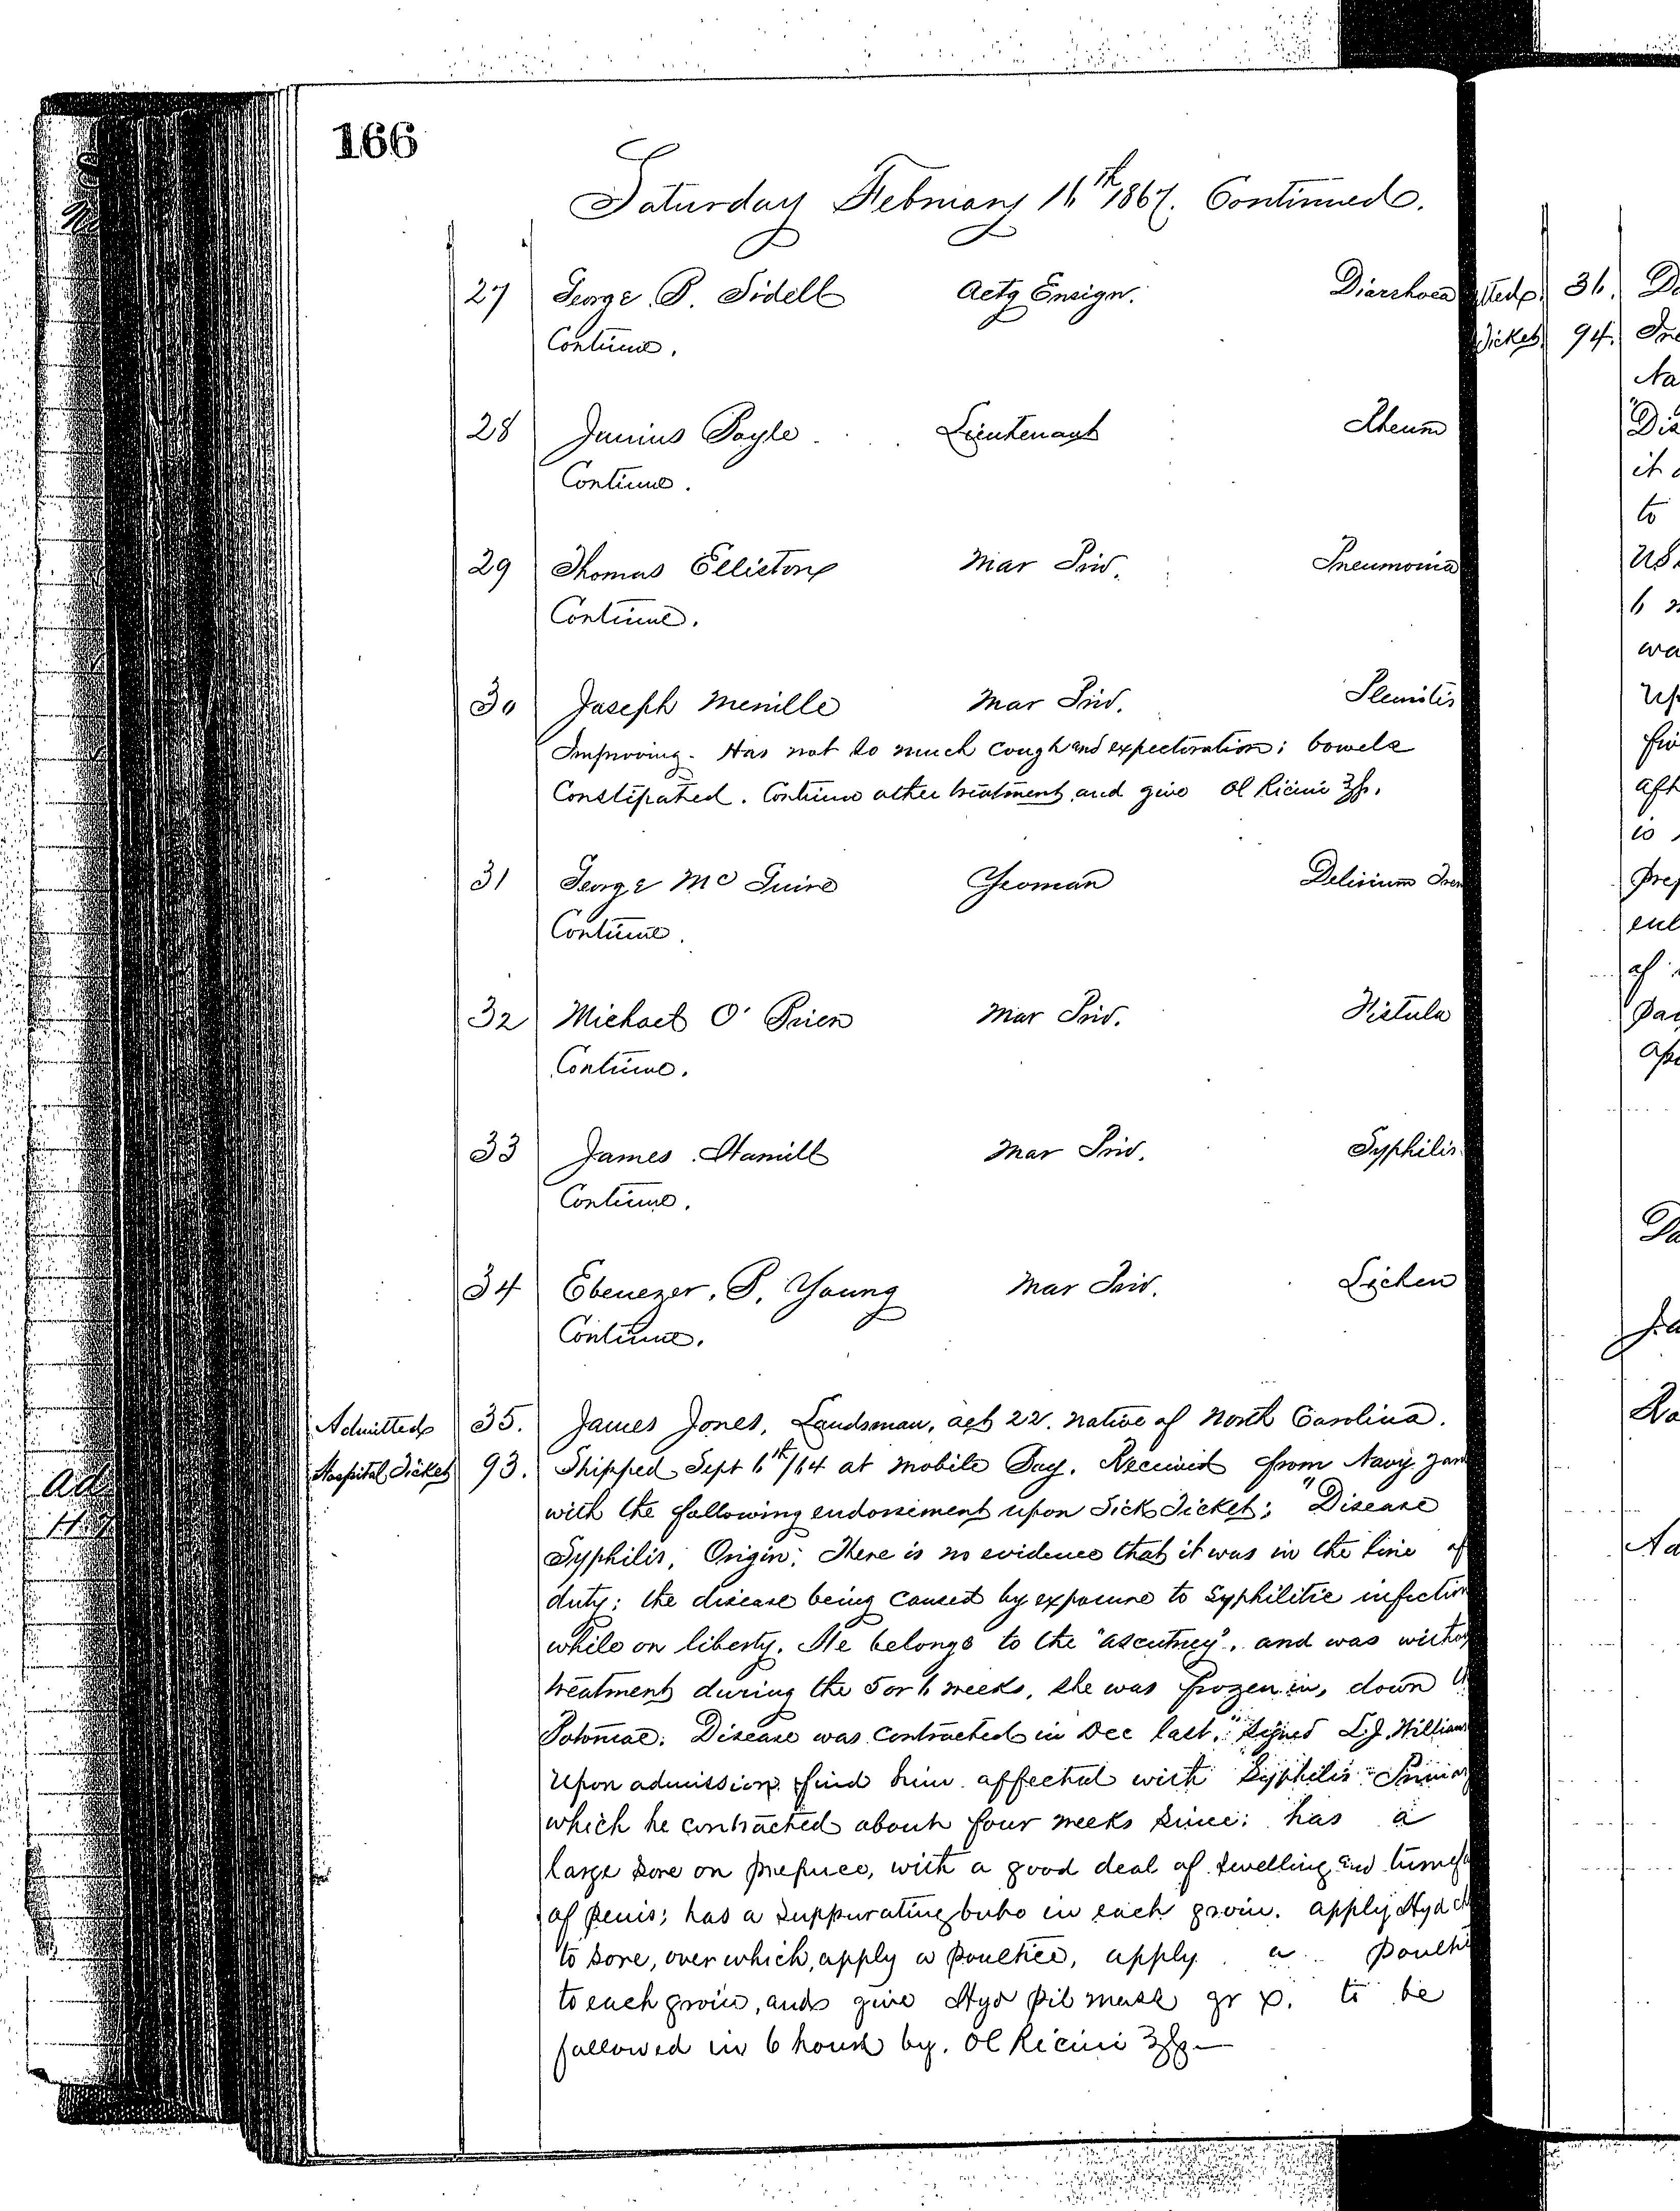 166
Saturday February 16th 1867. Continued.
27 George B. Sidell Actg Ensign. Diarrhoea
Continue.
28 Junius Boyle Lieutenant Rheum
Continue.
29 Thomas Ellistone Mar Priv. Pneumonia
Continue.
30 Joseph Menille Mar Priv. Pleuritis
Improving. Has not so much cough and expectoration; bowels
Constipated. Continue other treatment and give Ol Ricini ℥fs.
31 George McGuire Yeoman Delirium Trem
Continue.
32 Michael O'Brien Mar Priv. Fistula
Continue.
33 James Hamill Mar Priv. Syphilis
Continue.
34 Ebenezer. P. Young Mar Priv. Lichen
Continue.
Admitted 35. James Jones, Landsman, aet 22. native of North Carolina.
Hospital Ticket 93. Shipped Sept 6th/64 at Mobile Bay. Received from Navy Yard
with the following endorsement upon Sick Ticket; "Disease
Syphilis, Origin; There is no evidence that it was in the line of
duty; the disease being caused by exposure to Syphilitic infection
while on liberty. He belongs to the "Ascutney", and was withou
treatment during the 5 or 6 weeks, she was frozen in, down
Potomac. Disease was contracted in Dec last." Signed L.J. William
Upon admission find him affected with "Syphilis" Primar
which he contracted about four weeks since; has a
large sore on prepuce, with a good deal of swelling and tumefa
of penis; has a suppurating bubo in each groin. apply Hyd ch
to sore, over which, apply a poultice, apply a poulti
to each groin, and give Hyd pil mass gr x. to be
followed in 6 hours by. Ol Ricini ℥fs.—
31. D
94.
Na
"Dis
it
to
US
6
wa
Up
fiv
aft
is
prep
enl
of
pa
Da
Ad